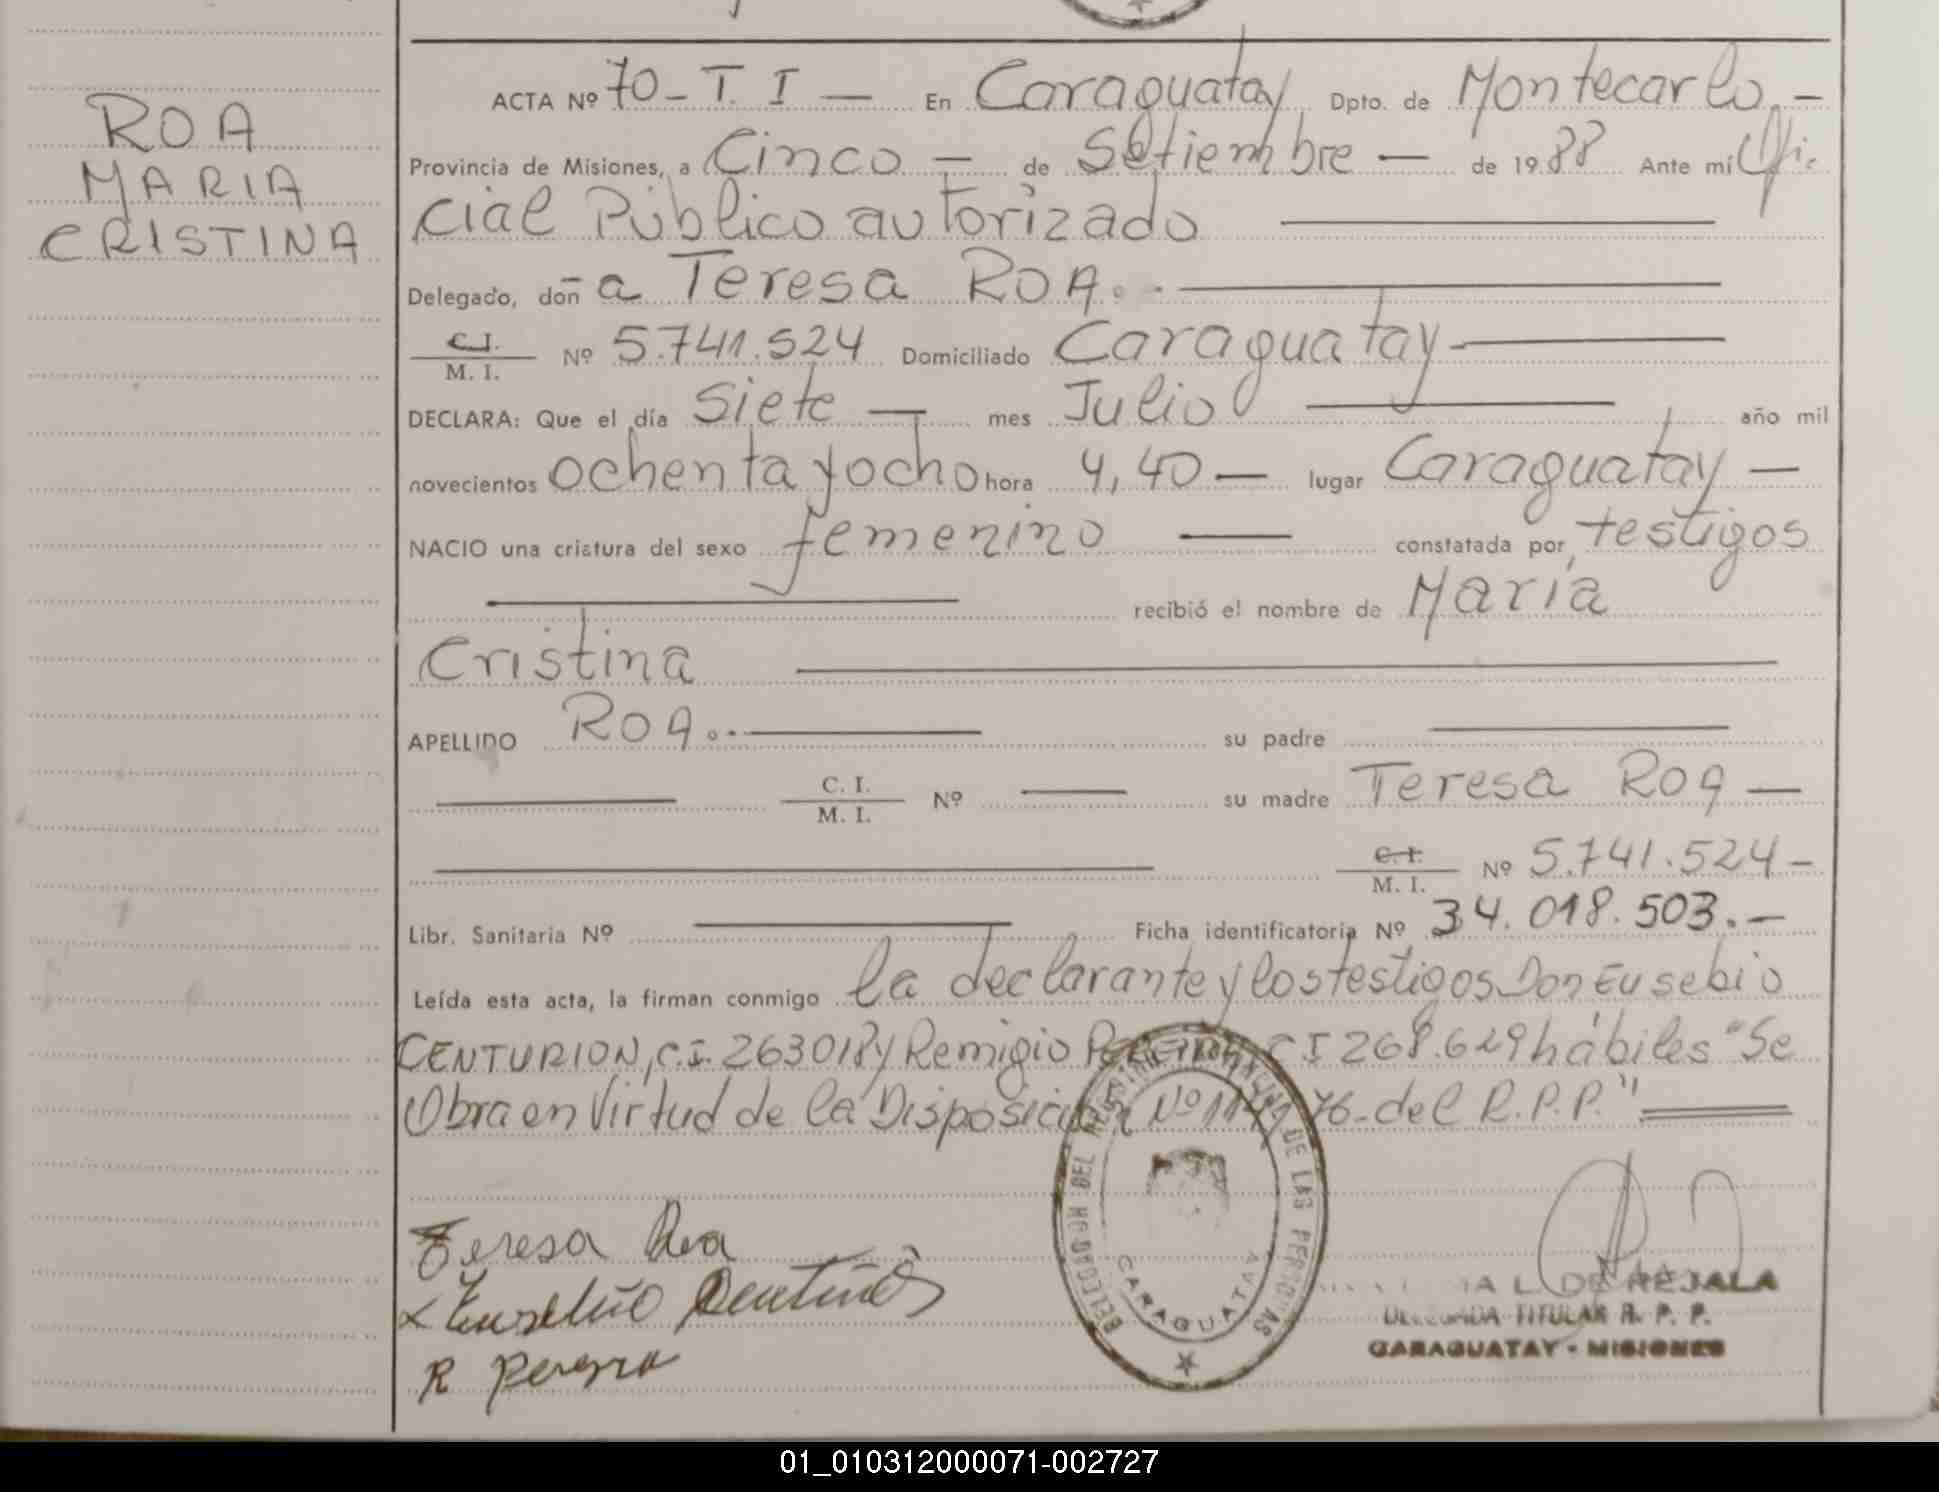 ROA
MARIA
CRISTINA
ACTA Nº 70-T. I — En Caraguatay Dpto. de Montecarlo.-
Provincia de Misiones, a Cinco — de Setiembre — de 1988 Ante mí Ofi-
cial Público autorizado
Delegado, don-a Teresa ROA.-
C.I.
M. I. Nº 5.741.524 Domiciliado Caraguatay
DECLARA: Que el día Siete — mes Julio año mil
novecientos ochenta y ocho hora 4,40 — lugar Caraguatay —
NACIO una criatura del sexo femenino constatada por, testigos
recibió el nombre de María
Cristina
APELLIDO ROA.- su padre
C. I.
M. I. Nº — su madre Teresa ROA —
C.I.
M. I. Nº 5.741.524-
Libr. Sanitaria Nº Ficha identificatoria Nº 34.018.503.-
Leída esta acta, la firman conmigo la declarante y los testigos Don Eusebio
CENTURION, C.I. 263018 y Remigio C I 268.629 hábiles "Se
Obra en Virtud de la Disposición Nº 76-del R.P.P."
Teresa Roa
Eusebio Centurión
R Pereyra
DEL DE LAS PERSONAS
CARAGUATAY
L. DE REJALA
TITULAR R. P. P.
CARAGUATAY - MISIONES
01_010312000071-002727